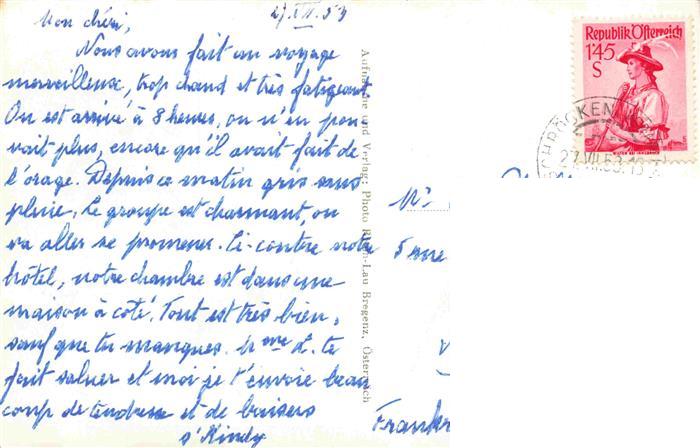 27.VII.53
Mon chéri,
Nous avons fait un voyage
merveilleux, trop chaud et très fatigeant
On est arrivé à 8 heures, on n'en pou
vait plus, encore qu'il avait fait de
l'orage. Depuis ce matin gris sans
pluie. Le groupe est charmant, on
va aller se promener. Ci-contre notre
hôtel, notre chambre est dans une
maison à côté. Tout est très bien,
sauf que tu manques. Mme L. te
fait saluer et moi je t'envoie beau
coup de tendresse et de baisers
s'Kindy
Aufnahme und Verlag: Photo Rhein-Lau Bregenz, Österreich
Republik Österreich
1'45
S
SCHRÖCKEN
27.VII.53
Mr
5 rue
V
Frankr